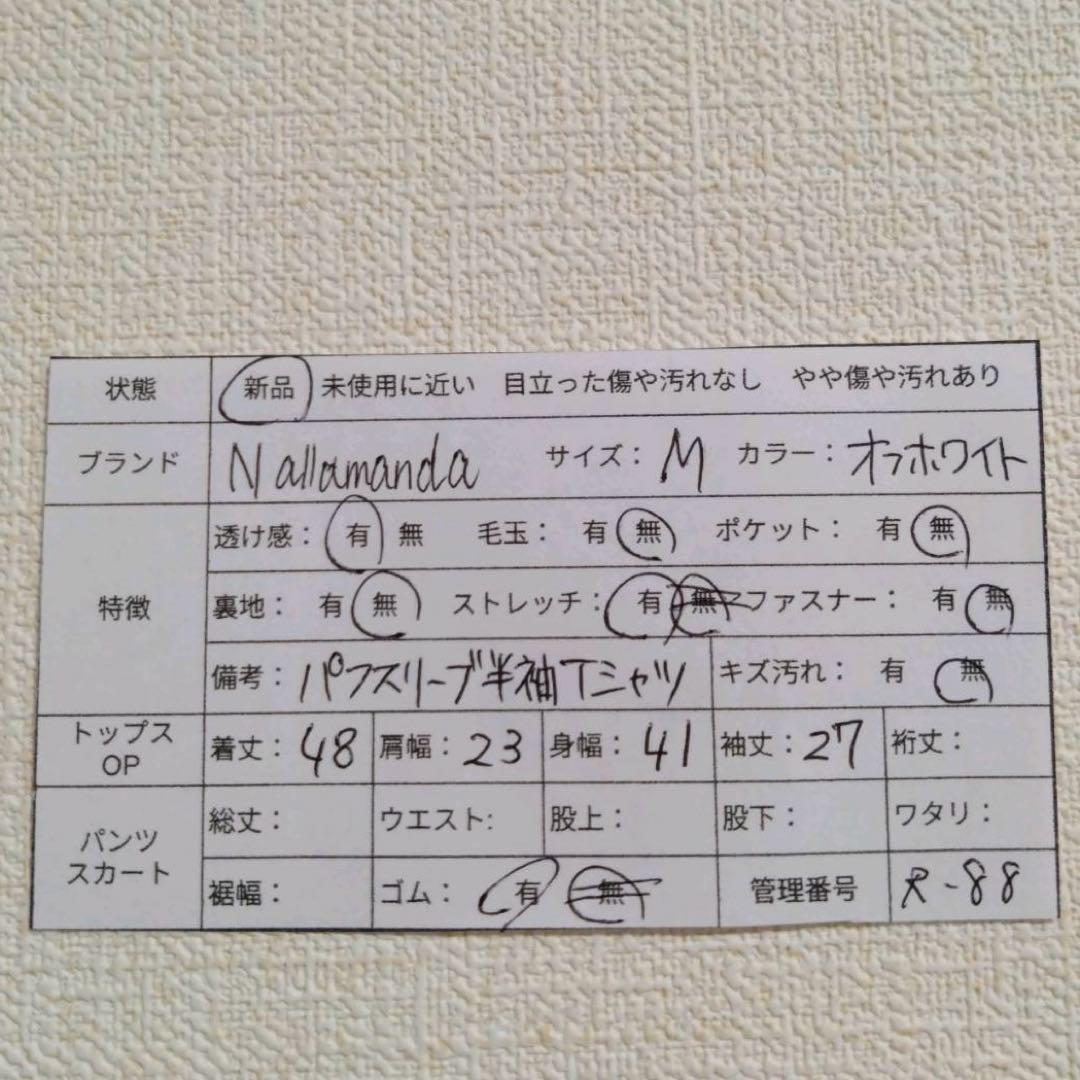 状態 新品 未使用に近い 目立った傷や汚れなし やや傷や汚れあり
ブランド Nallamanda サイズ: M カラー: オフホワイト
特徴
透け感: 有 無 毛玉: 有 無 ポケット: 有 無
裏地: 有 無 ストレッチ: 有 無 ファスナー: 有 無
備考: パフスリーブ半袖Tシャツ キズ汚れ: 有 無
トップス
OP
着丈: 48 肩幅: 23 身幅: 41 袖丈: 27 裄丈:
パンツ
スカート
総丈: ウエスト: 股上: 股下: ワタリ:
裾幅: ゴム: 有 無 管理番号 R-88